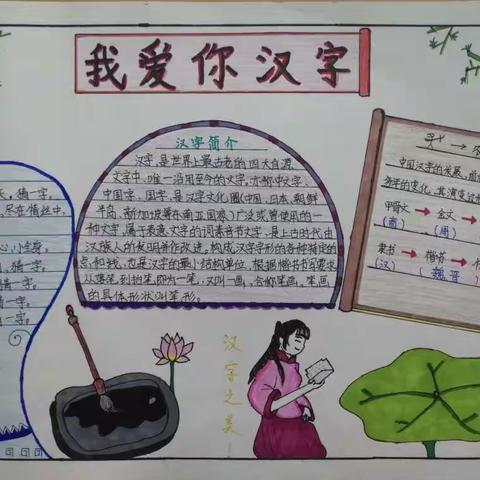 我爱你汉字
汉字简介
汉字,是世界上最古老的四大自源
文字中,唯一沿用至今的文字,亦称中文字、
中国字、国字,是汉字文化圈(中国、日本、朝鲜
半岛、新加坡等东南亚国家)广泛或曾使用的一
种文字,属于表意文字的词素音节文字,是上古时代由
汉族人的发明并作改进,构成汉字字形的各种特定的
点和线,也是汉字的最小结构单位,根据楷书书写要求
从落笔到抬笔,即为一笔,又叫一画,合称笔画,笔画
的具体形状叫笔形。
天,猜一字。
尽在情丝中,
心小全身,
猜一字。
猜一字。
一字。
一字。
中国汉字的发展,前
多年的变化,其演变过
甲骨文 → 金文 →
(商) (周)
隶书 → 楷书 →
(汉) (魏晋)
汉字之美!